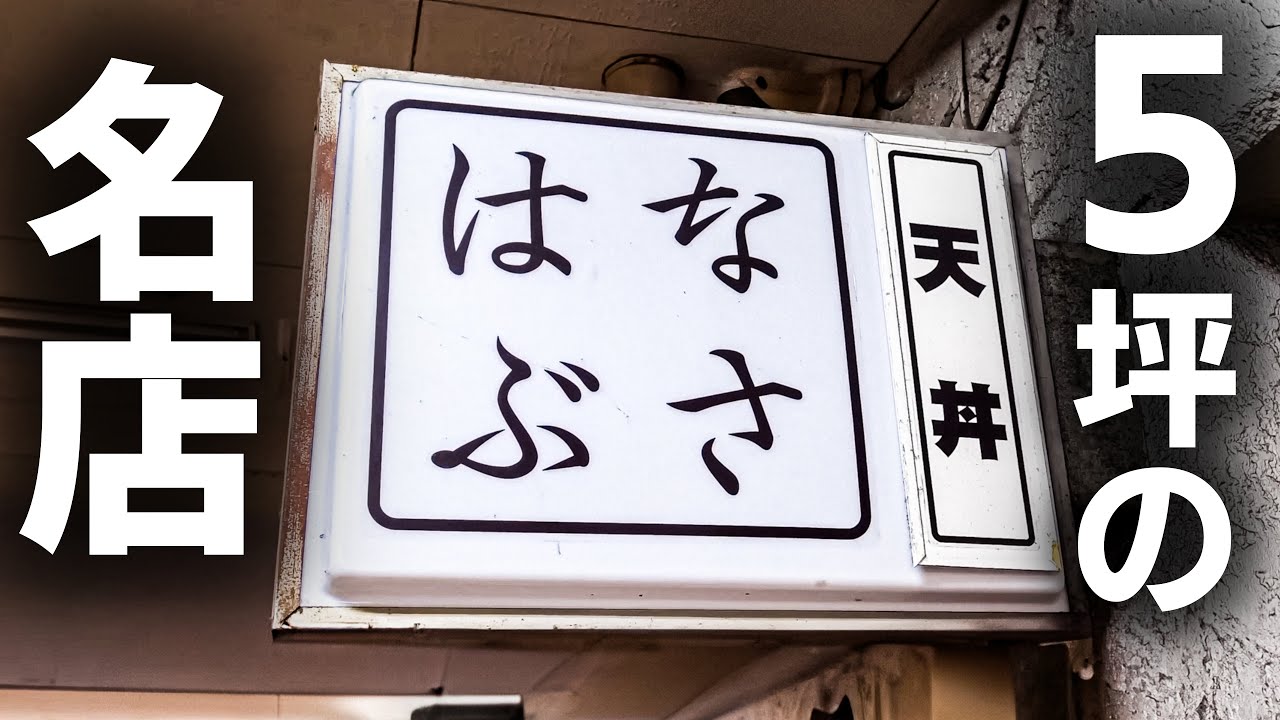 5坪の
天丼
はな
ぶさ
名店